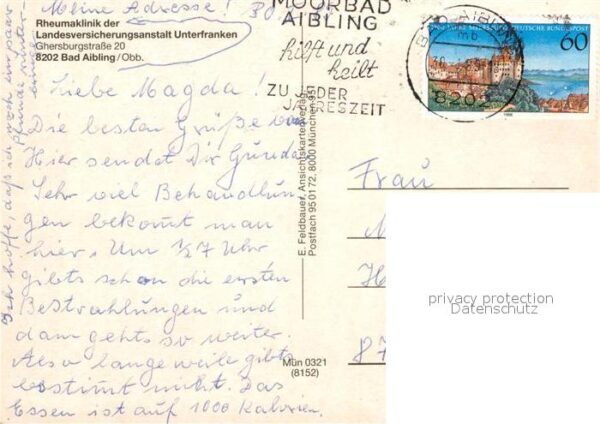 Meine Adresse!
Rheumaklinik der
Landesversicherungsanstalt Unterfranken
Ghersburgstraße 20
8202 Bad Aibling/Obb.
Liebe Magda!
Die besten Grüße von
Hier sendet Dir Gunda.
Sehr viel Behandlun-
gen bekommt man
hier. Um ½7 Uhr
gibts schon die ersten
Bestrahlungen und
dann gehts so weiter.
Also langeweile gibts
bestimmt nicht. Das
Essen ist auf 1000 Kalorien.
Ich hoffe, daß ich noch ein paar
Pfunde
MOORBAD
AIBLING
hilft und
heilt
ZU JEDER
JAHRESZEIT
BAD AIBLING
8202
DEUTSCHE BUNDESPOST
60
E. Feldbauer, Ansichtskartenverlag,
Postfach 950172, 8000 München 95
Mün 0321
(8152)
Frau
privacy protection
Datenschutz